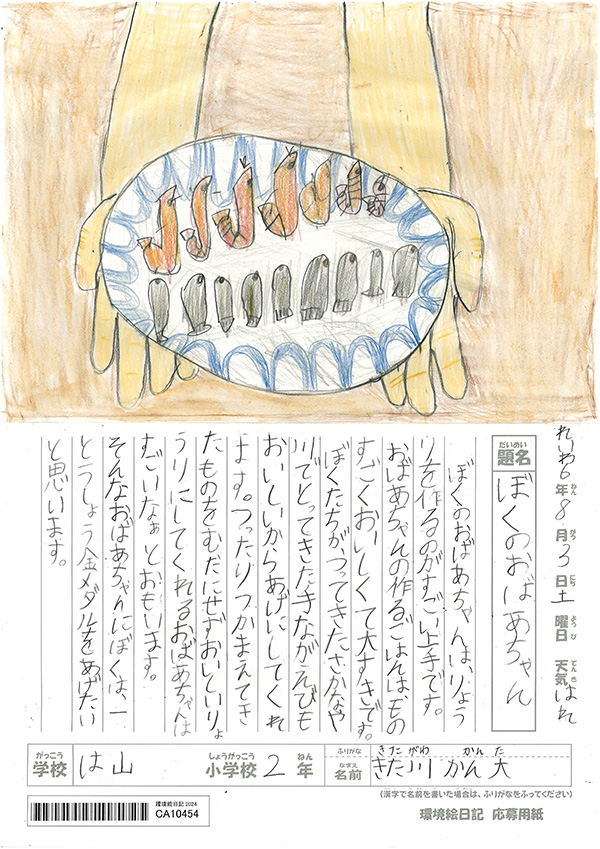 れいわ6年8月3日土曜日 天気はれ
ねん がつ にち ようび てんき
だいめい
題名 ぼくのおばあちゃん
ぼくのおばあちゃんは、りょう
りを作るのがすごい上手です。
おばあちゃんの作るごはんは、もの
すごくおいしくて大すきです。
ぼくたちが、つってきたさかなや
川でとってきた手ながえびも
おいしいからあげにしてくれ
ます。つったりつかまえてき
たものをむだにせずおいしいりょ
うりにしてくれるおばあちゃんは
すごいなぁとおもいます。
そんなおばあちゃんにぼくは、一
とうしょう金メダルをあげたい
と思います。
がっこう しょうがっこう ねん
学校 は山 小学校 2年
ふりがな きたがわ かんた
なまえ
名前 きた川 かん大
(漢字で名前を書いた場合は、ふりがなをふってください)
環境絵日記2024
CA10454
環境絵日記 応募用紙